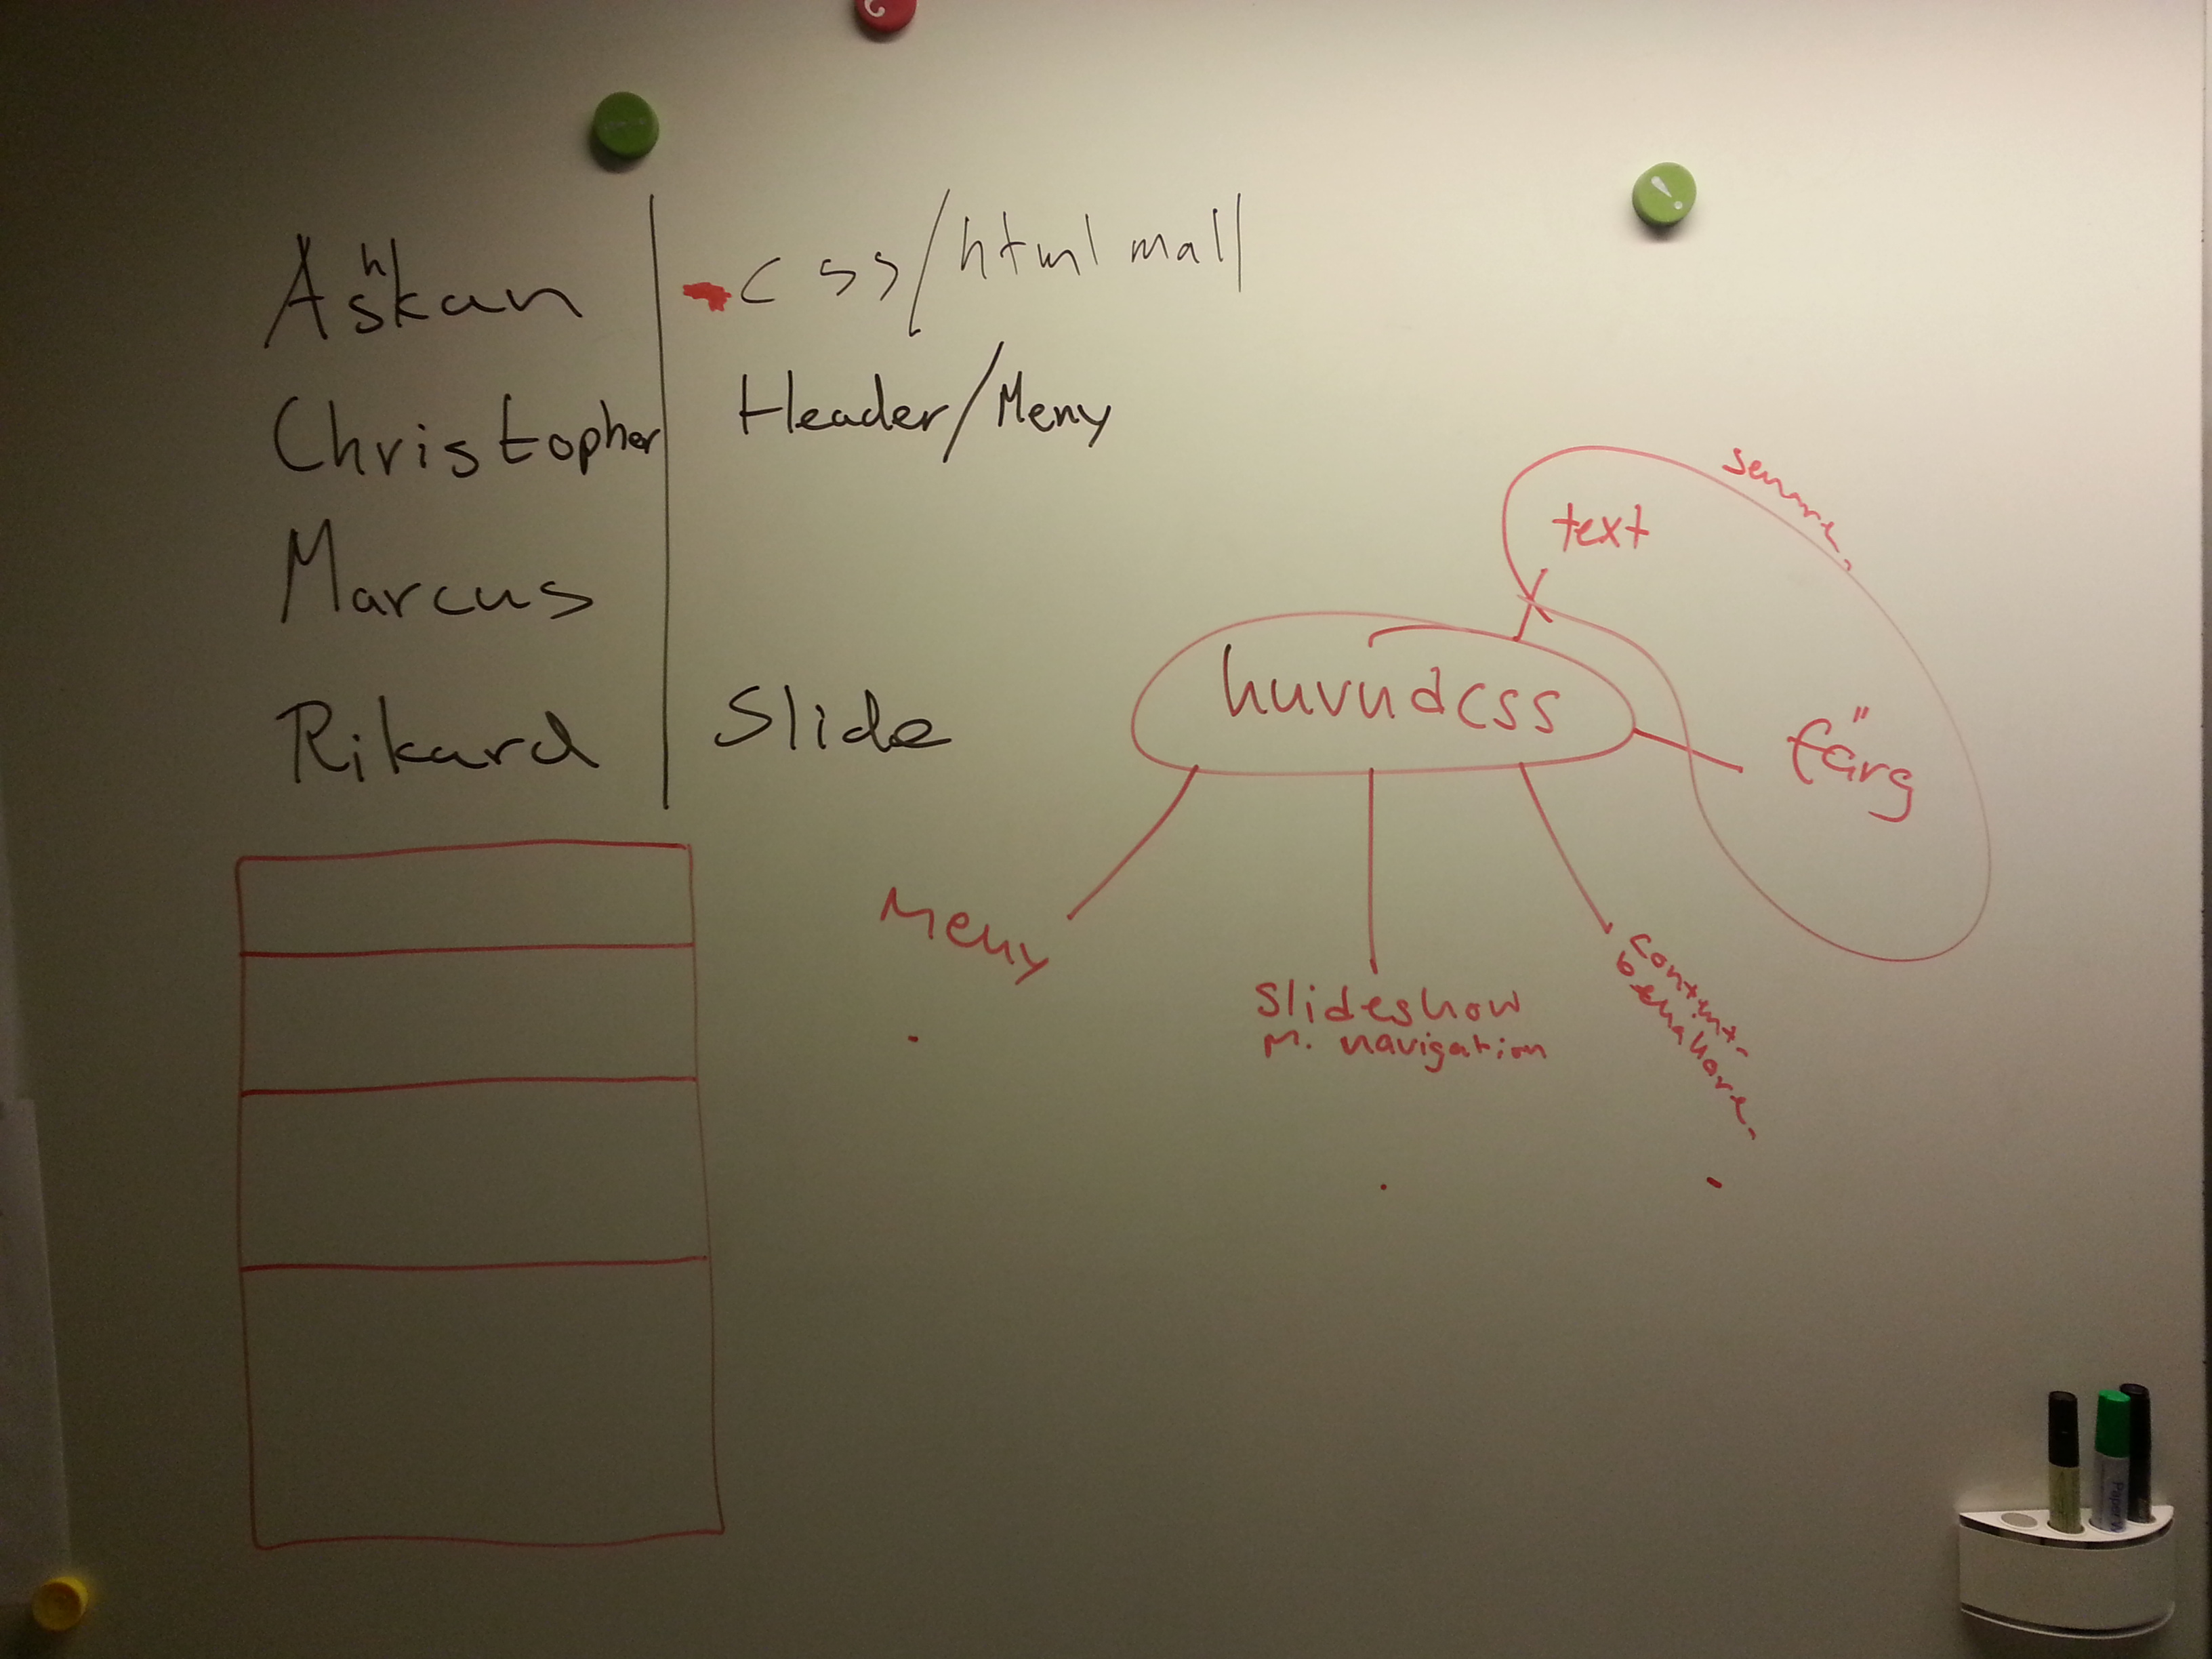 Ashkan
css/html mall
Christopher
Header/Meny
Marcus
Rikard
Slide
senare
text
huvudcss
färg
Meny
Slideshow
m. navigation
content-
behållare